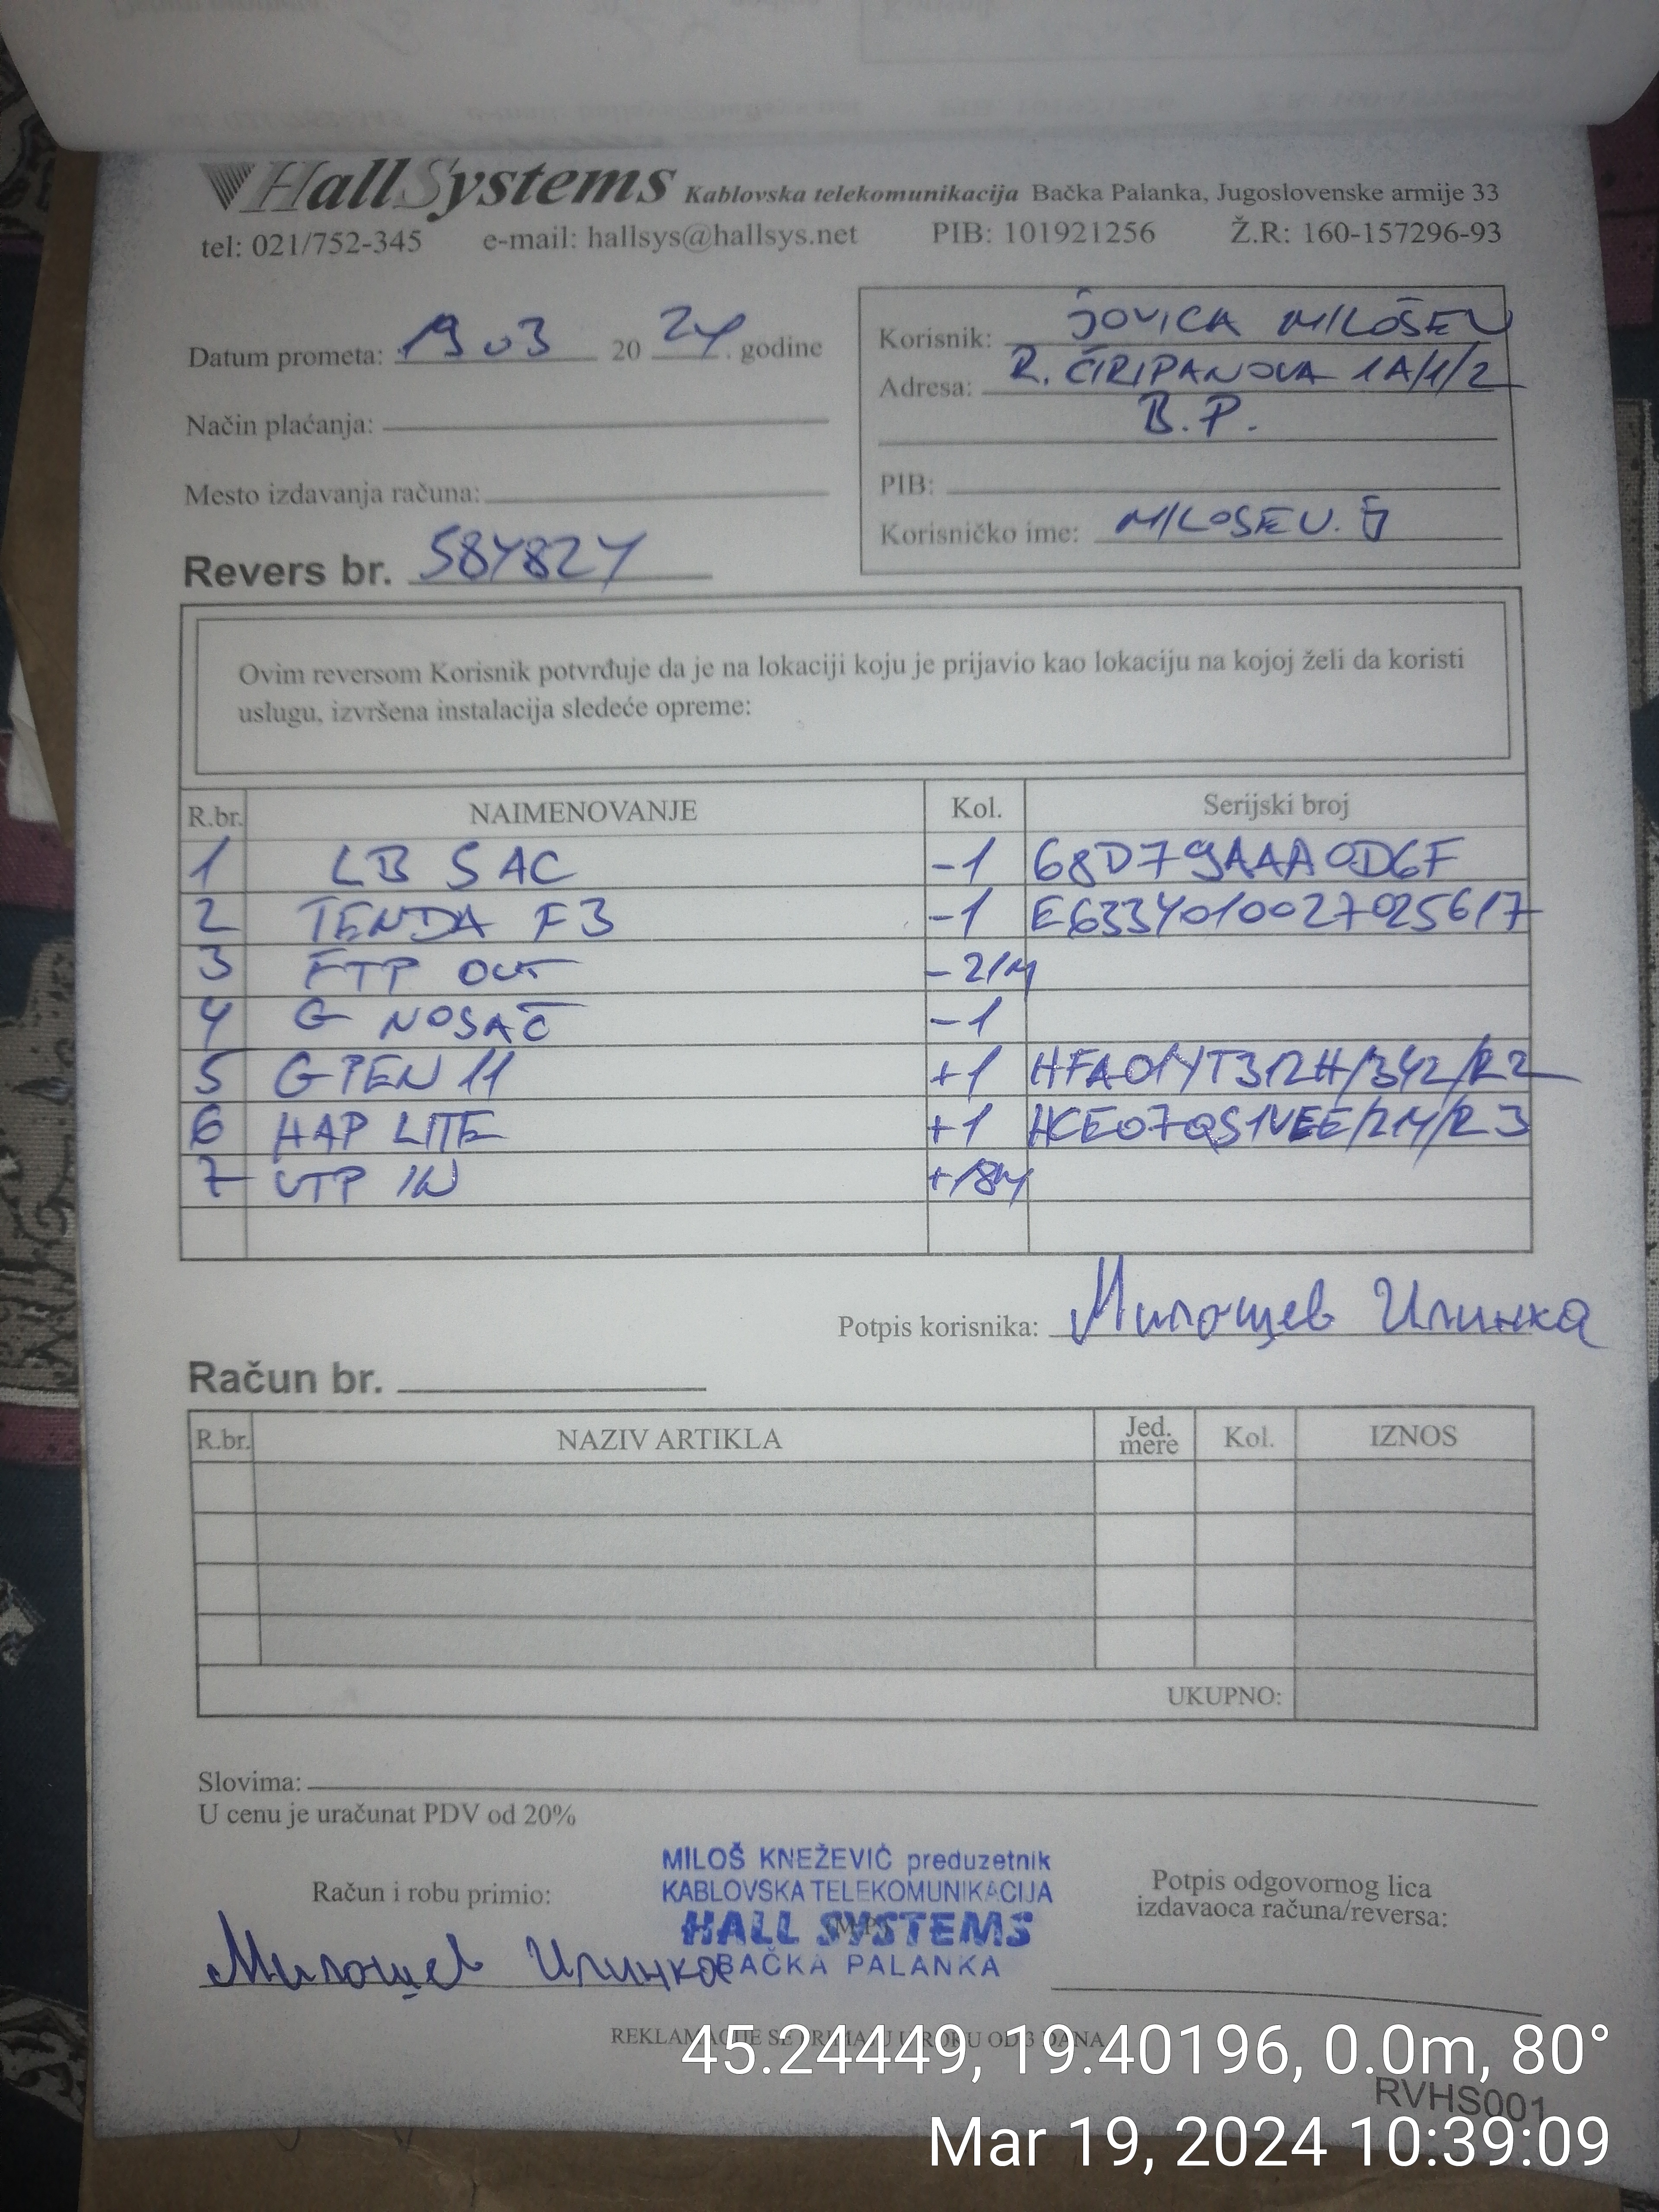 HallSystems Kablovska telekomunikacija Bačka Palanka, Jugoslovenske armije 33
tel: 021/752-345 e-mail: hallsys@hallsys.net PIB: 101921256 Ž.R: 160-157296-93
Datum prometa: 19 03 20 24. godine
Način plaćanja:
Mesto izdavanja računa:
Revers br. 584824
Korisnik: JOVICA MILOŠEV
Adresa: R. ČIRIPANOVA 1A/1/2
B.P.
PIB:
Korisničko ime: MILOSEV.J
Ovim reversom Korisnik potvrđuje da je na lokaciji koju je prijavio kao lokaciju na kojoj želi da koristi
uslugu, izvršena instalacija sledeće opreme:
R.br. NAIMENOVANJE Kol. Serijski broj
1 LB 5AC -1 68D79AAA0D6F
2 TENDA F3 -1 E6334010027025617
3 FTP OUT -21M
4 G NOSAČ -1
5 GPEN 11 +1
6 HAP LITE +1
7 UTP IN +18M
Potpis korisnika: Милошев Илинка
Račun br.
R.br. NAZIV ARTIKLA Jed. mere Kol. IZNOS
UKUPNO:
Slovima:
U cenu je uračunat PDV od 20%
Račun i robu primio:
Милошев Илинка
MILOŠ KNEŽEVIĆ preduzetnik
KABLOVSKA TELEKOMUNIKACIJA
HALL SYSTEMS
BAČKA PALANKA
Potpis odgovornog lica
izdavaoca računa/reversa:
REKLAMACIJE SE PRIMAJU U ROKU OD 3 DANA
45.24449, 19.40196, 0.0m, 80°
RVHS001
Mar 19, 2024 10:39:09